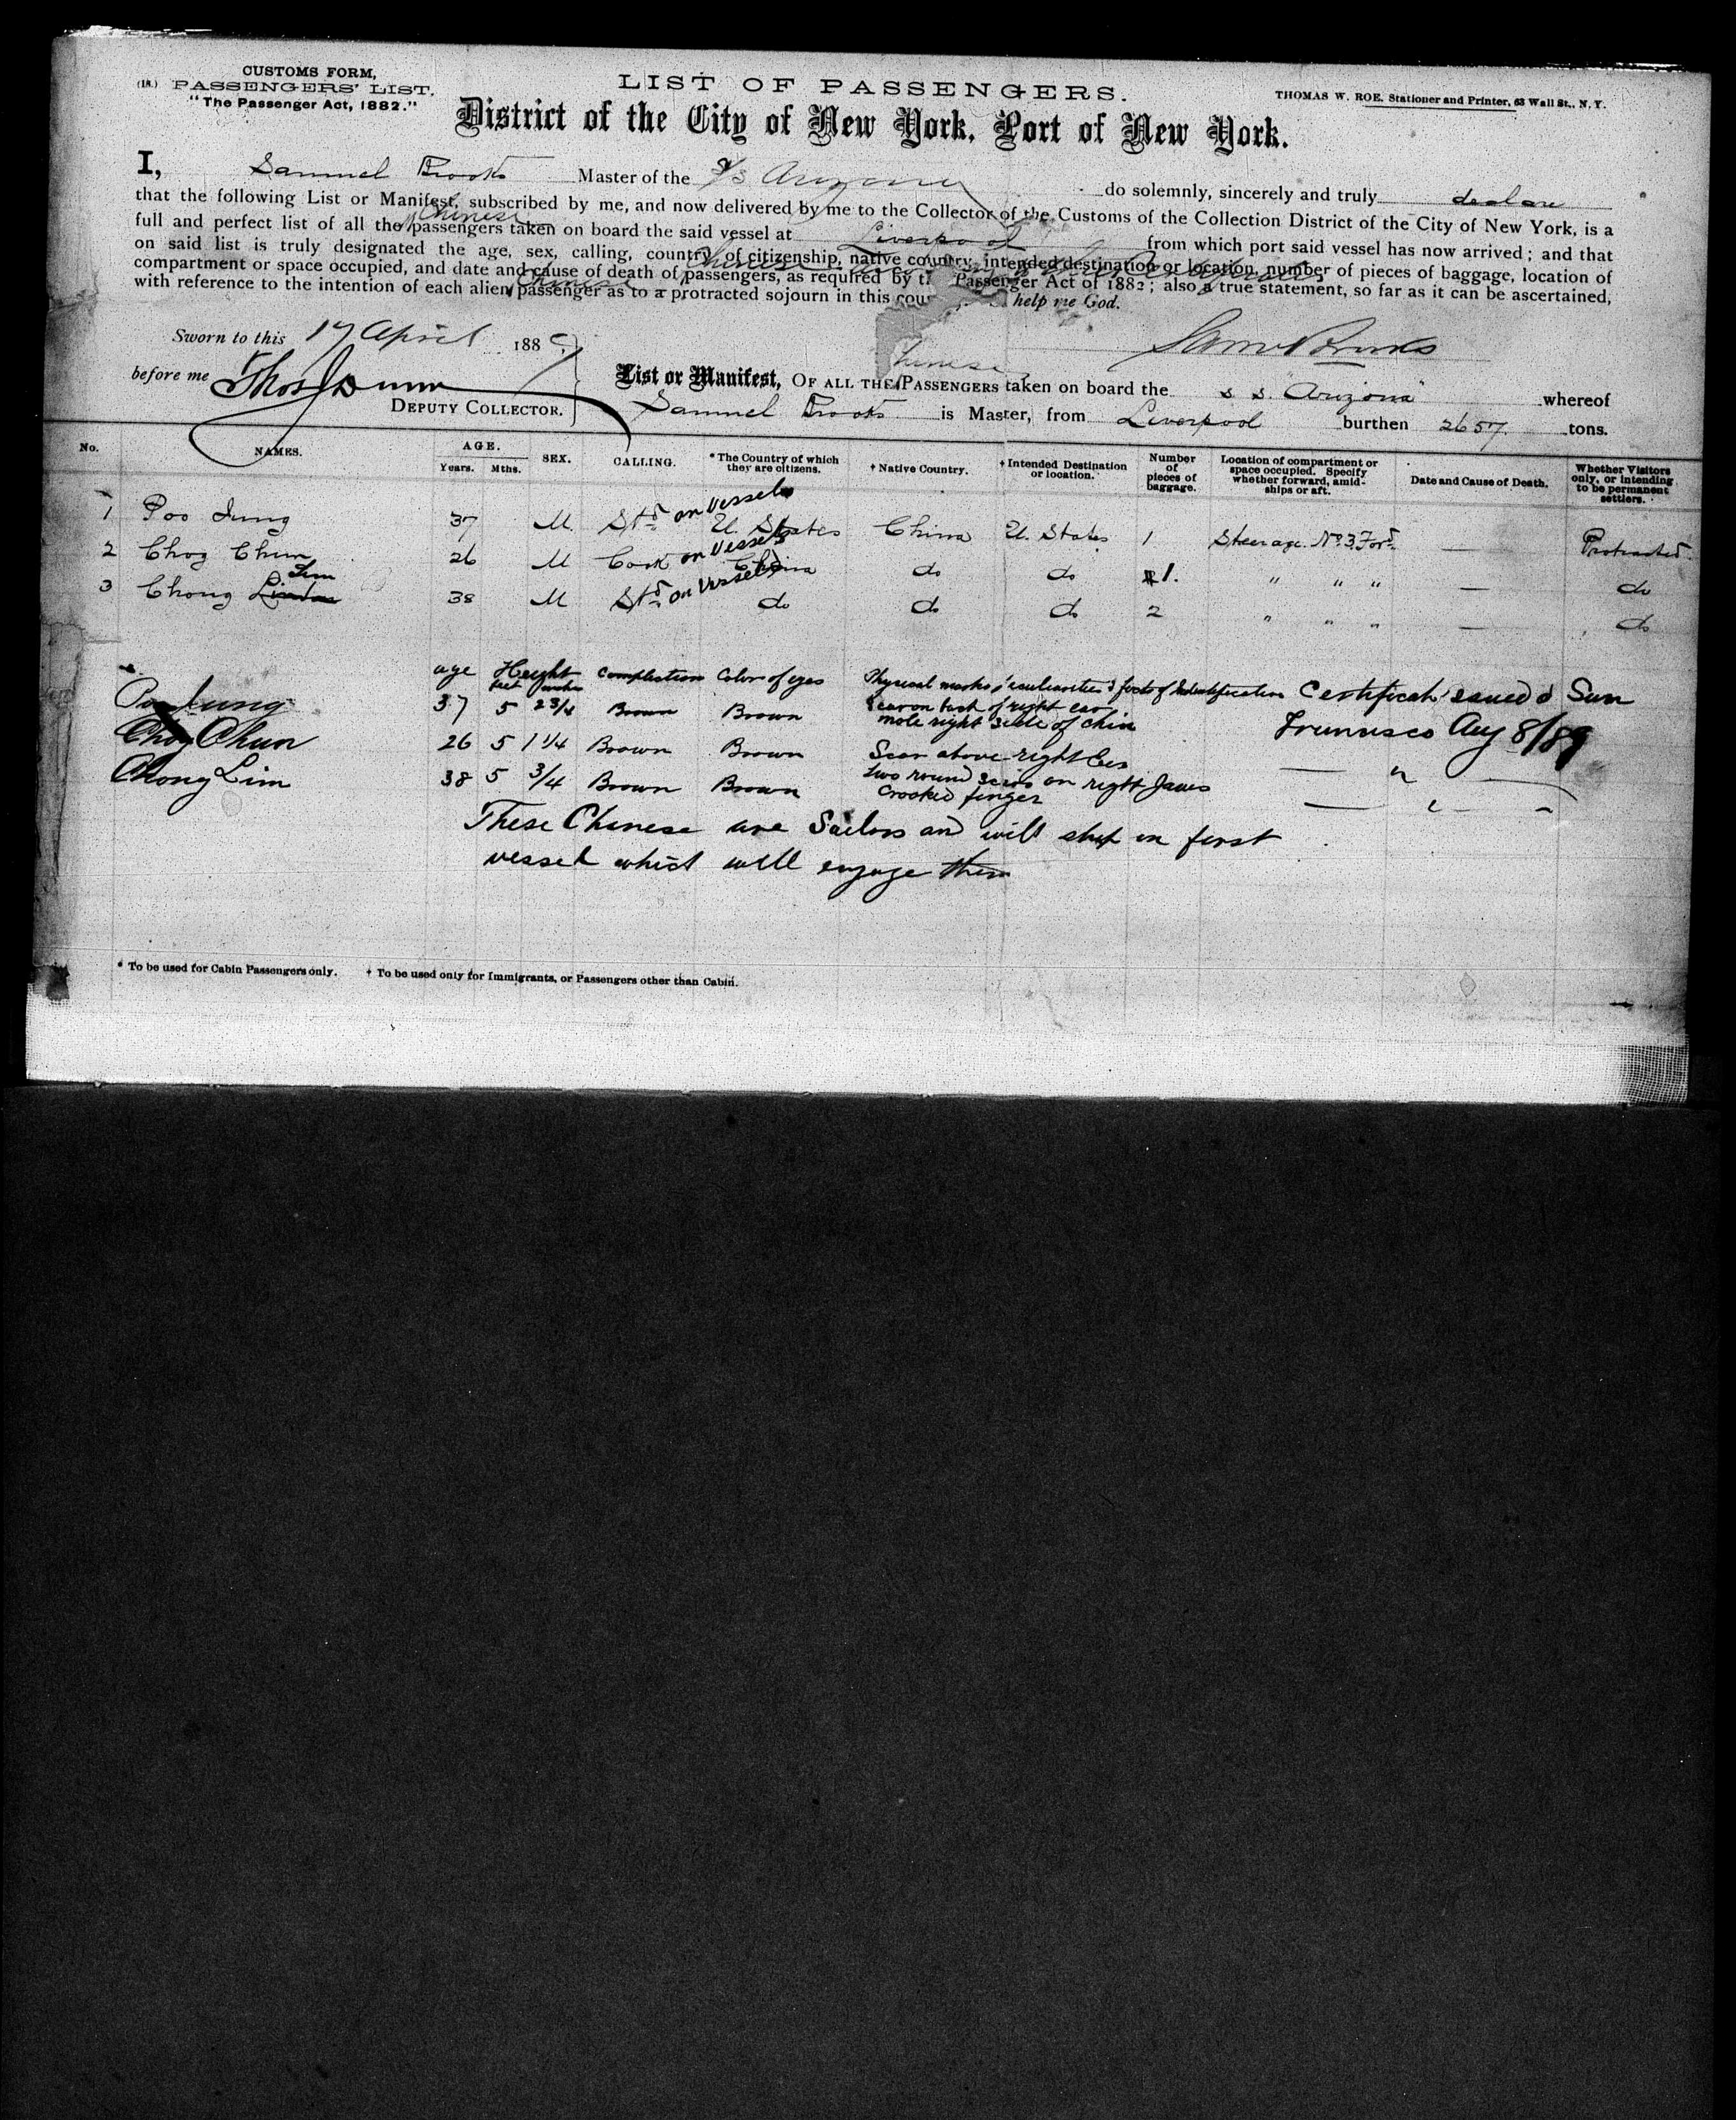 CUSTOMS FORM,
(18.) PASSENGERS' LIST.
"The Passenger Act, 1882."
LIST OF PASSENGERS.
THOMAS W. ROE, Stationer and Printer, 63 Wall St., N. Y.
District of the City of New York, Port of New York.
I, Samuel Brooks Master of the S/S Arizona do solemnly, sincerely and truly declare
that the following List or Manifest, subscribed by me, and now delivered by me to the Collector of the Customs of the Collection District of the City of New York, is a
full and perfect list of all the Chinese passengers taken on board the said vessel at Liverpool from which port said vessel has now arrived; and that
on said list is truly designated the age, sex, calling, country of citizenship, native country, intended destination or location, number of pieces of baggage, location of
compartment or space occupied, and date and cause of death of Chinese passengers, as required by the Passenger Act of 1882; also a true statement, so far as it can be ascertained,
with reference to the intention of each alien Chinese passenger as to a protracted sojourn in this help me God.
Sworn to this 17 April 188
Saml Brooks
before me Thos J Dunn
DEPUTY COLLECTOR.
List or Manifest, OF ALL THE Chinese PASSENGERS taken on board the s s "Arizona" whereof
Samuel Brooks is Master, from Liverpool burthen 2657 tons.
No. NAMES. AGE. Years. Mths. SEX. CALLING. *The Country of which they are citizens. † Native Country. † Intended Destination or location. Number of pieces of baggage. Location of compartment or space occupied. Specify whether forward, amidships or aft. Date and Cause of Death. Whether Visitors only, or intending to be permanent settlers.
1 Poo Jung 37 M. Std on Vessels U. States China U. States 1 Steerage No 3 Ford — Protracted
2 Choy Chun 26 M Cook on Vessels China do do 1. " " " — do
3 Chong Lim 38 M Std on Vessels do do do 2 " " " — do
age Height feet inches Complection Color of eyes Physical marks peculiarities & facts of Identification Certificate issued San
Poo Jung 37 5 2 3/4 Brown Brown Scar on back of right ear
mole right side of chin
Francisco Aug 8/89
Choy Chun 26 5 1 1/4 Brown Brown Scar above right
— " —
Chong Lim 38 5 3/4 Brown Brown two round scars on right Jaws
Crooked finger
— " —
These Chinese are Sailors and will ship on first
vessel which will engage them
* To be used for Cabin Passengers only. † To be used only for Immigrants, or Passengers other than Cabin.